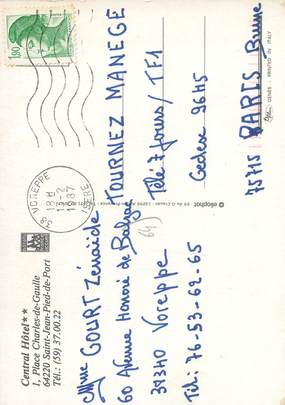 1,90
38 VOREPPE
18 H
13-2
1987
ISERE
Central Hôtel★★
1, Place Charles-de-Gaulle
64220 Saint-Jean-Pied-de-Port
Tél.: (59) 37.00.22
Mme GOURT Zénaïde
60 Avenue Honoré de Balzac
38340 Voreppe
Tel: 76-53-62-65
© elophot
641
TOURNEZ MANEGE
Télé 7 Jours / TF1
Cedex 96H5
75715 PARIS Brune
GENÈS - PRINTED IN ITALY